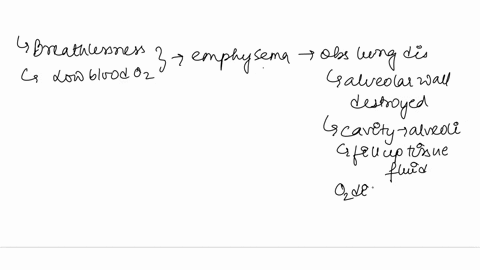 ↳ Breathlessness
↳ Low blood O2
} → emphysema → obs lung dis
↳ alveolar wall
destroyed
↳ cavity → alveoli
↳ fill up tissue
fluid
O2 de